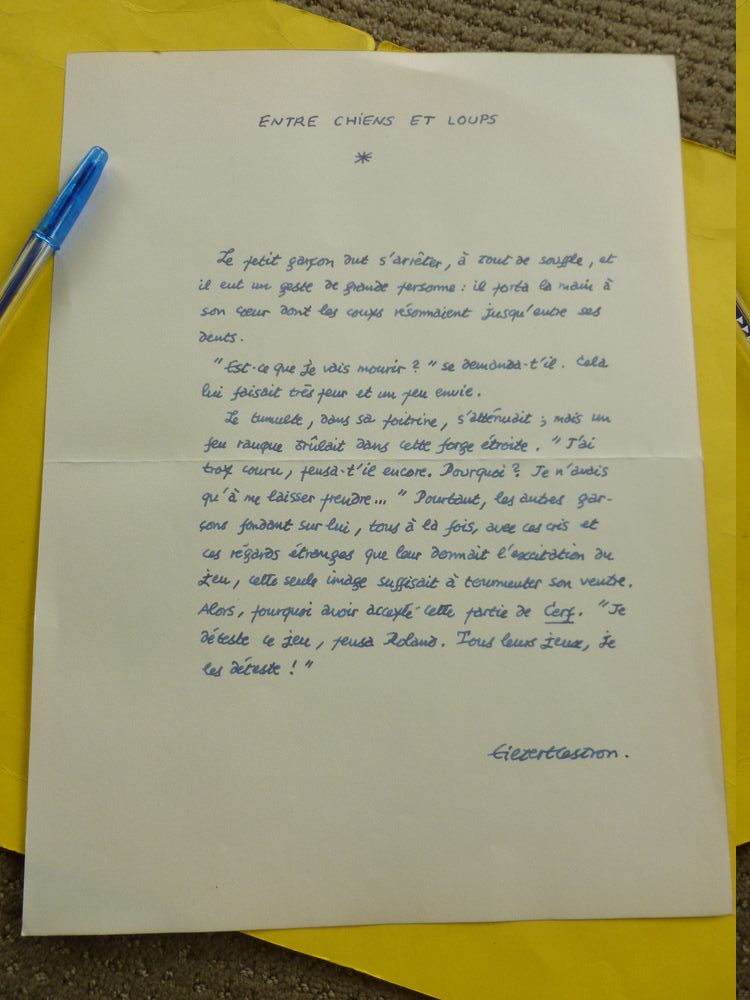 ENTRE CHIENS ET LOUPS
*
Le petit garçon dut s'arrêter, à bout de souffle, et
il eut un geste de grande personne : il porta la main à
son cœur dont les coups résonnaient jusqu'entre ses
dents.
"Est-ce que je vais mourir ?" se demanda-t'il. Cela
lui faisait très peur et un peu envie.
Le tumulte, dans sa poitrine, s'atténuait ; mais un
feu rauque brûlait dans cette forge étroite. "J'ai
trop couru, pensa-t'il encore. Pourquoi ? Je n'avais
qu'à me laisser prendre..." Pourtant, les autres gar-
çons fondant sur lui, tous à la fois, avec ces cris et
ces régards étranges que leur donnait l'excitation du
jeu, cette seule image suffisait à tourmenter son ventre.
Alors, pourquoi avoir accepté cette partie de Cerf. "Je
déteste ce jeu, pensa Roland. Tous leurs jeux, je
les déteste !"